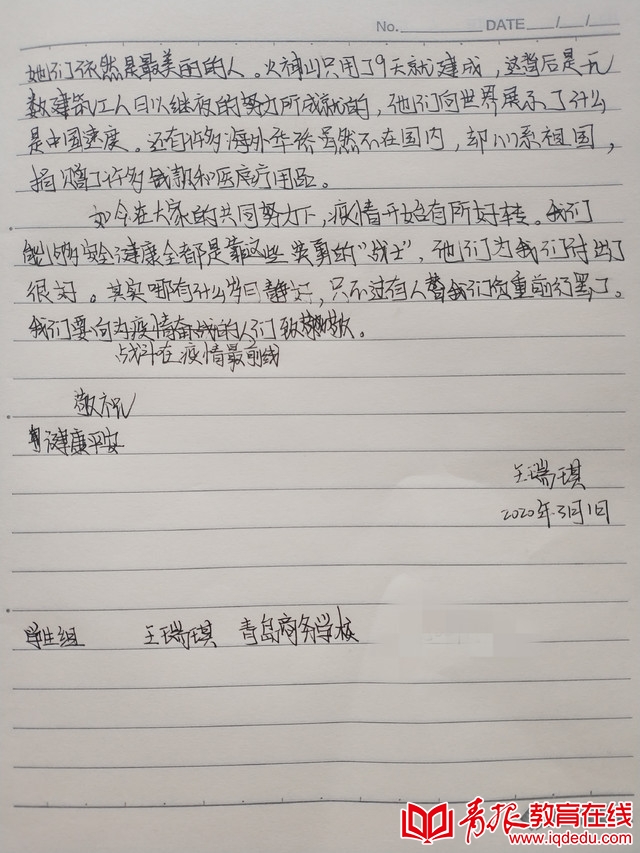 No. DATE / /
她们依然是最美丽的人。火神山只用了9天就建成，这背后是无
数建筑工人日以继夜的努力所成就的，他们向世界展示了什么
是中国速度。还有许多海外华侨虽然不在国内，却心系祖国，
捐赠了许多钱款和医疗用品。
如今在大家的共同努力下，疫情开始有所好转。我们
能够安全健康全都是靠这些英勇的“战士”，他们为我们付出了
很多。其实哪有什么岁月静好，只不过有人替我们负重前行罢了。
我们要向为疫情奋战的人们致敬
战斗在疫情最前线
敬祝
健康平安
王瑞琪
2020年3月1日
学生组 王瑞琪 青岛商务学校
青报教育在线
www.iqdedu.com